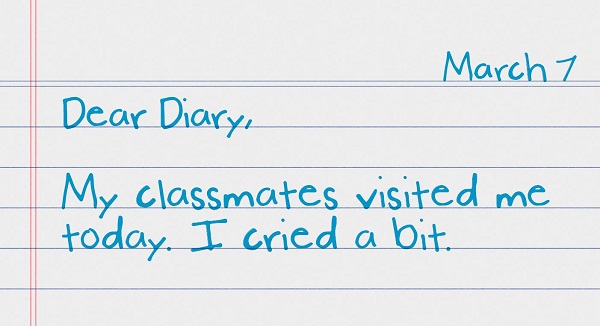 March 7
Dear Diary,
My classmates visited me
today. I cried a bit.